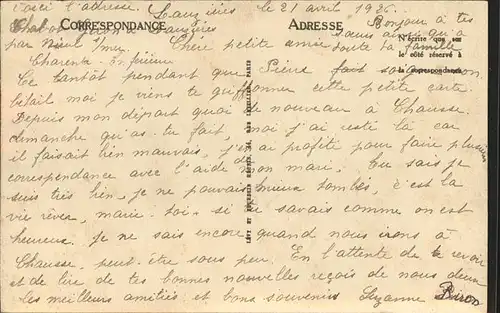 Voici l'adresse. Lauzières le 21 avril 1925. Bonjour à tes
CORRESPONDANCE ADRESSE
Biron à Lauzières sœurs ainsi qu'à
par Nieul s/mer Chère petite amie toute ta famille
N'écrire que sur
le côté réservé à
la correspondance
Charente Inférieure
Ce tantôt pendant que Pierre fait son
moi je viens te griffonner cette petite carte.
Depuis mon départ quoi de nouveau à Chausse.
dimanche qu'as-tu fait, moi j'ai resté là car
il faisait bien mauvais, j'ai profité pour faire plusieurs
correspondance avec l'aide de mon mari. Tu sais je
suis très bien, je ne pouvais mieux tombés, c'est la
vie rêver, marie-toi si tu savais comme on est
heureux. je ne sais encore quand nous irons à
Chausse, peut-être sous peu. En l'attente de te revoir
et de lire de tes bonnes nouvelles reçois de nous deux
les meilleurs amitiés et bons souvenirs Suzanne Biron
LÉVY ET NEURDEIN RÉUNIS, 44, RUE LETELLIER, PARIS